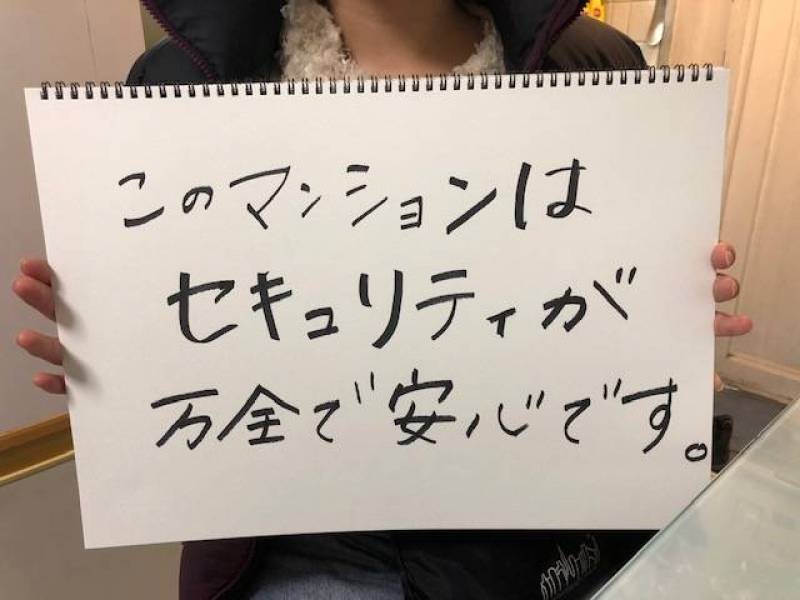 このマンションは
セキュリティが
万全で安心です。